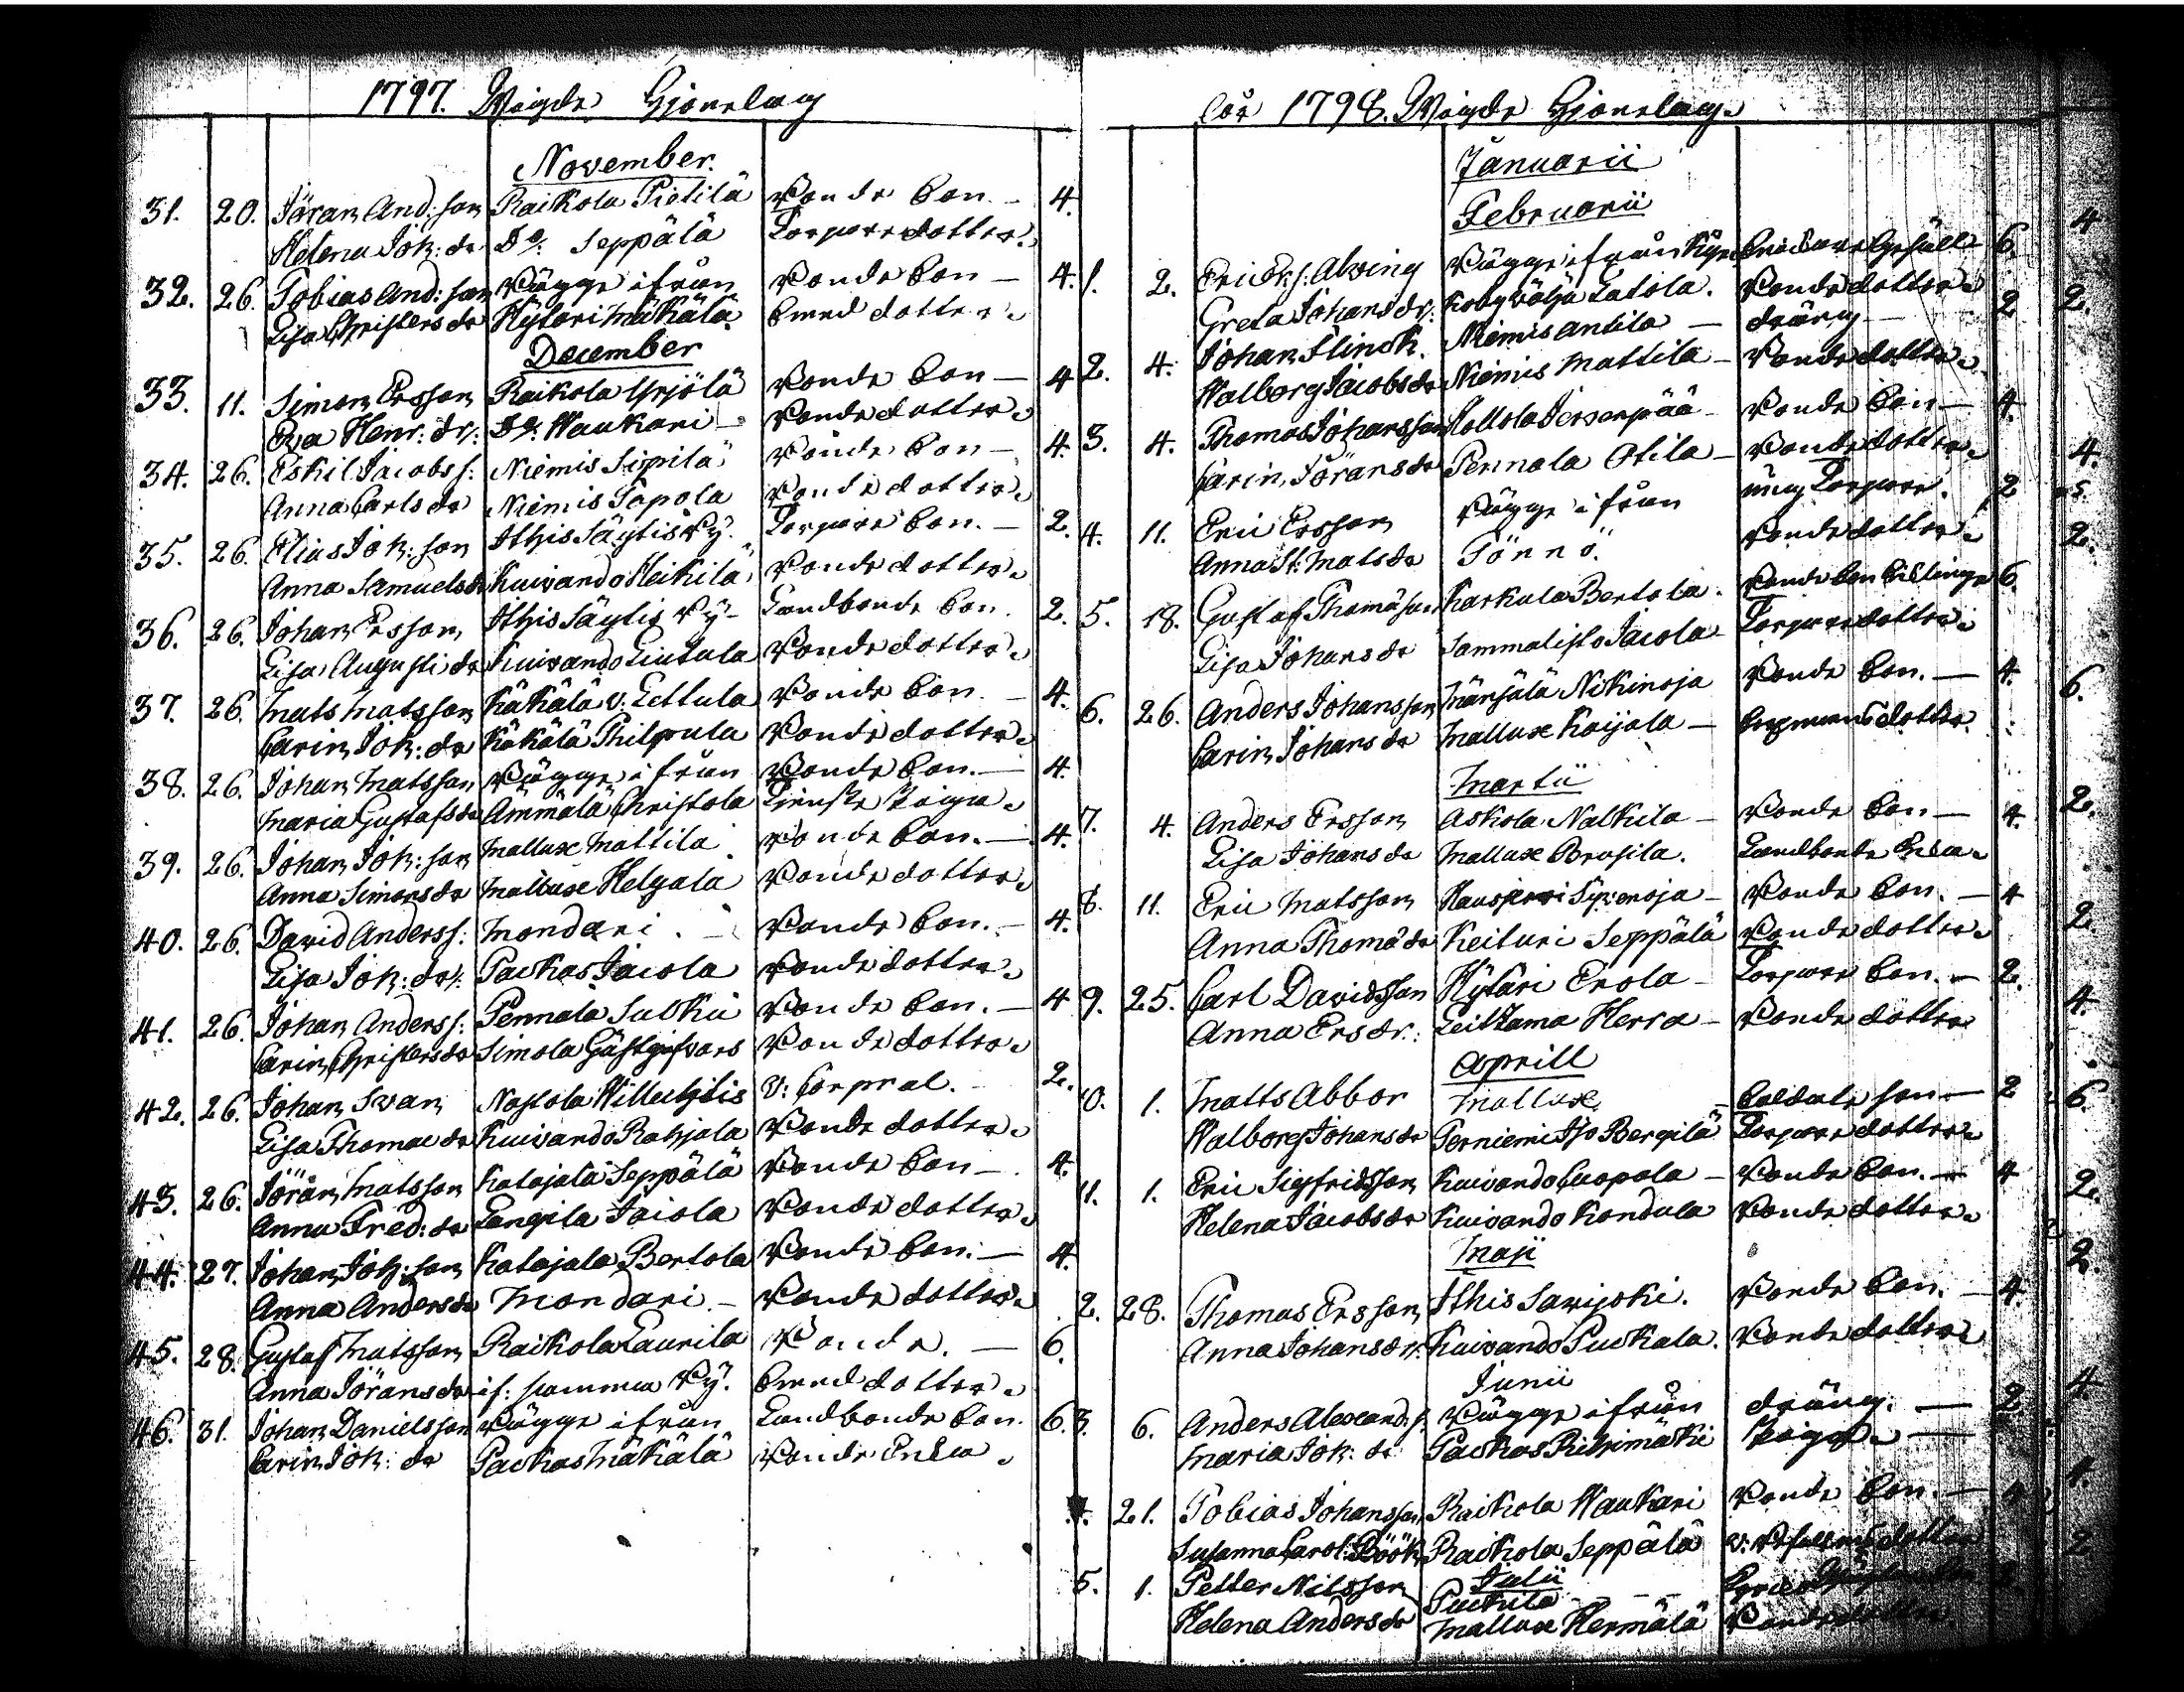 1797. Wigde Hjonelag
November.
31. 20. Jöran And:son Raikola Pietilä Bonde Son. - 4.
Helena Joh: dr Do. Seppälä Torpare dotter.
32. 26. Tobias And:son Bägge ifrån Bonde Son - 4.
Lisa Christersdr Hytari Mäkälä Smed dotter.
December
33. 11. Simon Ersson Raikola Yrjölä Bonde Son - 4
Eva Henr: dr. Do. Waukari - Bonde dotter.
34. 26. Eskil Jacobs s: Niemis Sipilä Bonde Son - 4.
Anna Carlsdr Niemis Tapola Bonde dotter.
35. 26. Elias Joh:son Ithis Säytis By. Torpare Son. - 2.
Anna Samuelsdr Kuivando Heikilä Bonde dotter.
36. 26. Johan Ersson Ithis Säytis By - Landbonde Son. 2.
Lisa Augusti dr Kuivando Liutula Bonde dotter.
37. 26. Mats Matsson Käkälä v. Eettula Bonde Son. - 4.
Carin Joh: dr Käkälä Philpula Bonde dotter.
38. 26. Johan Matsson Bägge ifrån Bonde Son. - 4.
Maria Gustafsdr Ammälä Christola Tienste Piga.
39. 26. Johan Joh:son Mallusk Mattila Bonde Son. - 4.
Anna Simonsdr Mallusk Helyala Bonde dotter.
40. 26. David Anderss: Mondari. - Bonde Son. - 4.
Lisa Joh: dr. Packas Jaiola Bonde dotter.
41. 26. Johan Anderss: Pennala Sulku Bonde Son. - 4
Carin Christersdr Simola Gästgifvars Bonde dotter.
42. 26. Johan Svan Nastola Willeckylis V: Corpral. - 2.
Lisa Thomae dr Kuivando Rahjala Bonde dotter.
43. 26. Jöran Matsson Katajala Seppälä Bonde Son - 4.
Anna Fred: dr Langila Jaiola Bonde dotter.
44. 27. Johan Joh:son Katajala Bertola Bonde Son. - 4.
Anna Andersdr Mondari. - Bonde dotter.
45. 28. Gustaf Matsson Raikola Laurila Bonde. - 6.
Anna Jöransdr if: samma By. Smed dotter.
46. 31. Johan Danielsson Bägge ifrån Landbonde Son. 6.
Carin Joh: dr Packas Mäkälä Bonde Enka.
1798. Wigde Hjonelag.
Januarii
Februarii
1. 2. Eric Er:s. Alving Bägge ifrån 6.
Greta Johansdr. Latola. Bonde dotter.
2. 4. Johan Flinck. Niemis Antila - dräng - 2
Walborg Jacobsdr Niemis Mattila - Bonde dotter.
3. 4. Thomas Johansson Hollola Jervenpää - Bonde Son - 4.
Carin Jöransdr Pennala Otila - Bonde dotter.
4. 11. Eric Ersson Bägge ifrån ung Torpare. 2
Anna St: Matsdr Tönnö. Bonde dotter.
5. 18. Gustaf Thomason Karkula Bertola. Bonde Son 6.
Lisa Johansdr Sammalisto Jaiola - Torpare dotter.
6. 26. Anders Johansson Mänjälä Nikinoja Bonde Son. - 4.
Carin Johansdr Mallusk Kaijala - dotter.
Martii
7. 4. Anders Ersson Askola Nalkila - Bonde Son - 4.
Lisa Johansdr Mallusk Brusila. Landbonde Enka.
8. 11. Eric Matsson Hausjervi Sipenoja - Bonde Son. - 4
Anna Thomädr Keituri Seppälä Bonde dotter.
9. 25. Carl Davidsson Hytäri Erola - Torpare Son. - 2.
Anna Ersdr. Leitzama Herra - Bonde dotter
Aprill
10. 1. Matts Abbor Mallusk - Soldats son - 2
Walborg Johansdr Perniemi Iso Bergilä Torpare dotter.
11. 1. Eric Sigfridsson Kuivando Cuopala - Bonde Son. - 4
Helena Jacobsdr Kuivando Kandula Bonde dotter.
Maji
2. 28. Thomas Ersson Ithis Savijoki. Bonde Son. - 4.
Anna Johansdr. Kuivando Puckala. Bonde dotter
Junii
3. 6. Anders Alexand. s. Bägge ifrån dräng. - 2.
Maria Joh: dr Packas Piga. -
21. Tobias Johansson Raikola Waukari Bonde Son. - 4
Susanna Carol: Böök Raikola Seppälä dotter
Julii
5. 1. Petter Nilsson Puckila - - -
Helena Andersdr Mallusk Hermälä Bonde dotter.